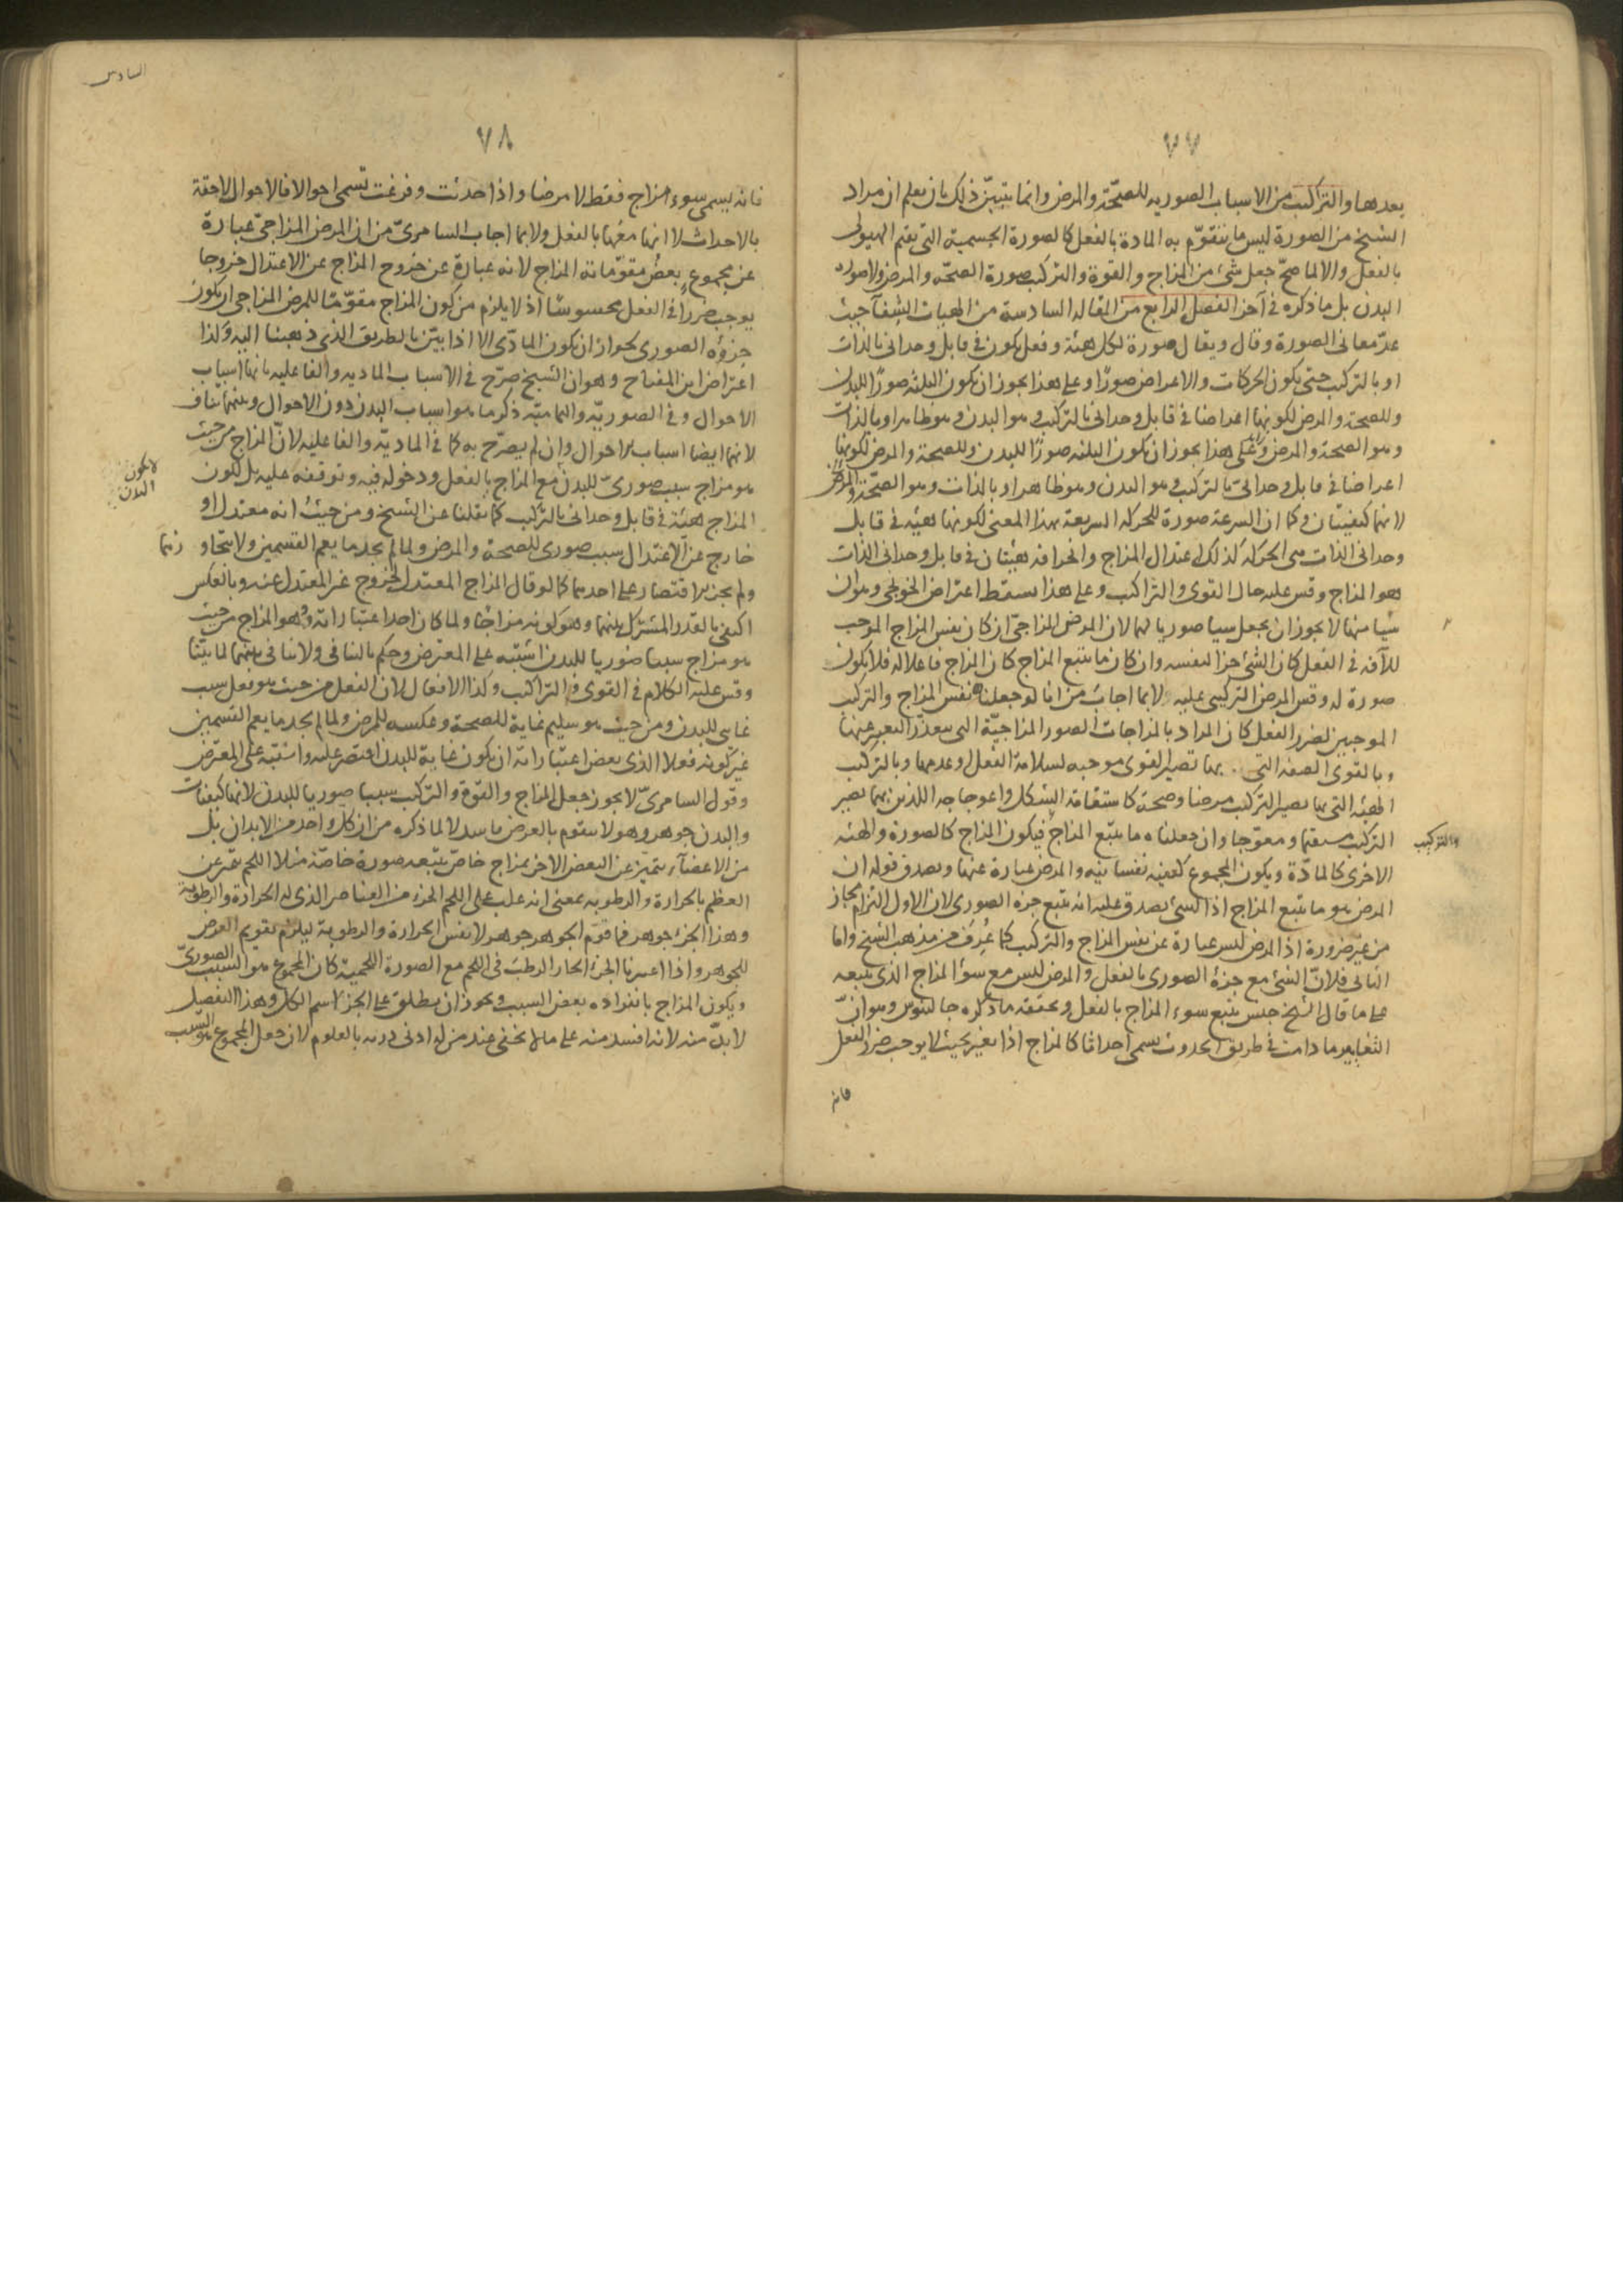 ٧٧
بعدها والتراكيب من الاسباب الصوريه للصحّة والمرض وانما يتبيّن ذلك بان يعلم ان مراد
الشيخ من الصورة ليس ما يتقوّم به المادة بالفعل كالصورة الجسمية التي يقيم الهيولى
بالفعل والا لما صحّ جعل شئ من المزاج والقوة والتركيب صورة الصحّه والمرض ولا صورة
البدن بل ما ذكره في آخر الفصل الرابع من المقاله السادسة من الهيات الشفآ حيث
عدّ معانى الصورة وقال ويقال صورة لكل هيئة وفعل يكون في قابل وحدانى بالذات
او بالتركيب حتى يكون الحركات والاعراض صورًا وعلى هذا يجوز ان يكون الثلثه صورًا للبدن
وللصحة والمرض لكونها اعراضا في قابل وحدانى بالتركيب وهو البدن وهو ظاهر او بالذات
وهو الصحة والمرض وعلى هذا يجوز ان يكون الثلثه صورًا للبدن وللصحة والمرض لكونها
اعراضا في قابل وحدانىّ بالتركيب وهو البدن وهو ظاهر او بالذات وهو الصحّة والمرض
لانهما كيفيتان وكما ان السرعة صورة للحركه السريعة بهذا المعنى لكونها هيئه في قابل
وحدانى الذات هى الحركة كذلك اعتدال المزاج وانحرافه هيئتان في قابل وحدانى الذات
هو المزاج وقس عليه حال القوى والتراكيب وعلى هذا يسقط اعتراض الخونجى وهو ان
شيا منها لا يجوز ان يجعل سببا صوريا لهما لان المرض المزاجىّ ان كان نفس المزاج الموجب
للآفه في الفعل كان الشئ جزا لنفسه وان كان ما يتبع المزاج كان المزاج فاعلا له فلا يكون
صورة له وقس المرض التركيبى عليه لا بما اجاب من انا لو جعلناه نفس المزاج والتركيب
الموجبين لضرر الفعل كان المراد بالمزاجات الصور المزاجيّة التى يتعذّر التعبير عنها
وبالقوى الصفه التى بها تصير القوى موجبه لسلامة الفعل وعدمها وبالتركيب
الهيئه التى بها يصير التركيب مرضا وصحة كاستقامة الشكل واعوجاجه اللذين بهما يصير
التركيب مستقيما ومعوّجا وان جعلناه ما يتبع المزاج فيكون المزاج كالصورة والهيئه
والتركيب
الاخرى كالمادّة ويكون المجموع كيفيه نفسانيه والمرض عبارة عنها ويصدق قوله ان
المرض هو ما يتبع المزاج اذا الشئ يصدق عليه انه يتبع جزه الصورى لان الاول التزام مجاز
من غير ضرورة اذ المرض ليس عبارة عن نفس المزاج والتركيب كما عُرِفَ من مذهب الشيخ واما
الثانى فلانّ الشئ مع جزءه الصورى بالفعل والمرض ليس مع سوء المزاج الذى يتبعه
على ما قال الشيخ جنس يتبع سوء المزاج بالفعل وتحققه ما ذكره جالينوس وهو انّ
التغايير ما دامت في طريق الحدوث يسمى احداثا كالمزاج اذا تغير بحيث لا يوجب ضرر الفعل
فانه
السادس
٧٨
فانه يسمى سوء مزاج فقط لا مرضا واذا حدثت وفرغت تسمى احوالا فالاحوال لاحقة
بالاحداث لا انها معها بالفعل ولا بما اجاب السامرىّ من ان المرض المزاجىّ عبارة
عن مجموع بعضُ مقوّماته المزاج لانه عبارة عن خروج المزاج عن الاعتدال خروجا
يوجب ضررا في الفعل محسوسًا اذ لا يلزم من كون المزاج مقوّمًا للمرض المزاجى ان يكون
جزؤه الصورى لجواز ان يكون المادّى الا اذا بيّن بالطريق الذى ذهبنا اليه ولذا
اعتراض ابن المفتاح وهو ان الشيخ صرّح في الاسباب الماديه والفاعليه بانها اسباب
الاحوال وفى الصوريّه والتماميّه ذكر ما هو اسباب البدن دون الاحوال وبينهما تناف
لانها ايضا اسباب للاحوال وان لم يصرّح به كما في الماديّة والفاعليه لانّ المزاج من حيث
هو مزاج سبب صورىّ للبدن مع المزاج بالفعل ودخوله فيه وتوقفه عليه بل لكون
لا لكون
البدن
المزاج هيئة في قابل وحدانى بالتركيب كما نقلنا عن الشيخ ومن حيثُ انه معتدل او
خارج عن الاعتدال سبب صورى للصحة والمرض ولما لم يجد ما يعم القسمين ولا يتجاوزهما
ولم يجز الاقتصار على احدهما كما لو قال المزاج المعتدل لخروج غير المعتدل عنه وبالعكس
اكتفى بالقدر المشترك بينهما وهو كونه مزاجا ولما كان احد اعتباراته وهو المزاج من حيث
هو مزاج سببا صوريا للبدن اشتبه على المعترض وحكم بالتنافى ولا تنافى بينهما لما بيّنّا
وقس عليه الكلام في القوى والتراكيب وكذا الافعال لان الفعل من حيث هو فعل سبب
غائى للبدن ومن حيث هو سليم غاية للصحة وعكسه للمرض ولما لم يجد ما يعم القسمين
غير كونه فعلا الذى بعض اعتباراته ان يكون غاية للبدن اقتصر عليه واشتبه على المعترض
وقول السامرىّ لا يجوز جعل المزاج والقوة والتركيب سببا صوريا للبدن لانها كيفيّات
والبدن جوهر وهو لا يتقوم بالعرض فاسد لا لما ذكره من ان كل واحد من الابدان بل
من الاعضآء يتميز عن البعض الاخر بمزاج خاصّ يتبعه صورة خاصّة مثلا اللحم تميز عن
العظم بالحرارة والرطوبه بمعنى انه غلب على اللحم الجزء من العناصر الذى له الحرارة والرطوبة
وهذا الجزء جوهر فما قوّم الجوهر جوهر لا نفس الحرارة والرطوبة ليلزم تقويم العرض
للجوهر واذا اعتبرنا الجزء الحار الرطب في اللحم مع الصورة اللحمية كان المجموع هو السبب الصورىّ
ويكون المزاج بانفراده بعض السبب ويجوز ان يطلق على الجزء اسم الكل وهذا التفصيل
لا بدّ منه لانه افسد منه على ما لا يخفى عند من له ادنى دربه بالعلوم لان جعل المجموع هو السّبب